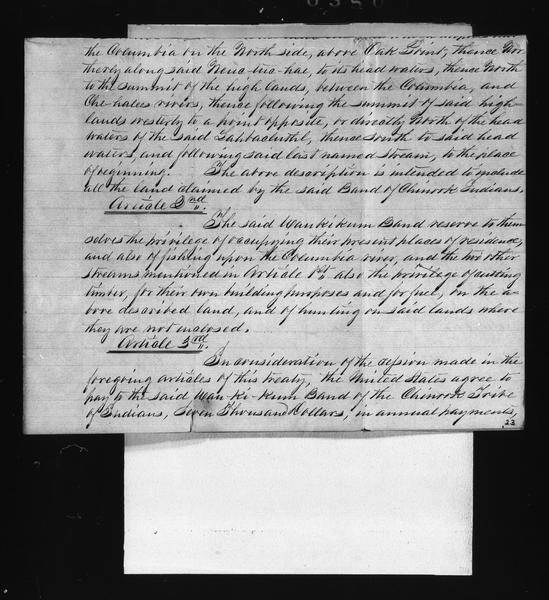 0350
the Columbia on the North side, above Oak Point, thence Nor
therly along said Neuc-tuc-hae, to its head waters, thence North
to the summit of the high lands, between the Columbia, and
Che-hales rivers, thence following the summit of said high-
lands westerly to a point opposite, or directly North of the head
waters of the said thence South to said head
waters, and following said last named stream, to the place
of beginning. The above description is intended to include
all the land claimed by the said Band of Chinook Indians.
Article 2nd
The said Waukikum Band reserve to them
selves the privilege of occupying their present places of residence,
and also of fishing upon the Columbia river, and the two other
streams mentioned in Article 1st also the privilege of cutting
timber, for their own building purposes and for fuel, on the a-
bove described land, and of hunting on said lands where
they are not enclosed.
Article 3rd
In consideration of the cession made in the
foregoing articles of this treaty, the United States agree to
pay to the said Wau-ki-kum Band of the Chinook Tribe
of Indians, Seven Thousand Dollars, in annual payments,
23